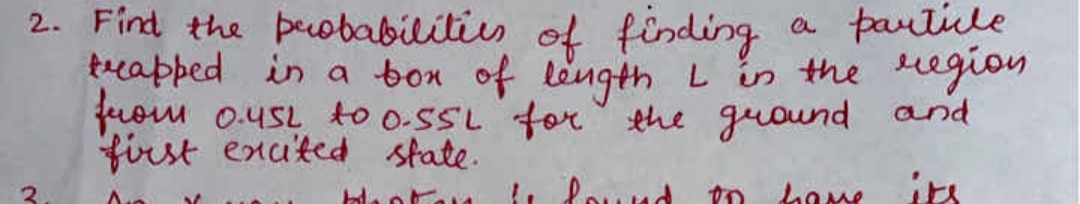 2. Find the probabilities of finding a particle
trapped in a box of length L in the region
from 0.45L to 0.55L for the ground and
first excited state.
3. An X-ray photon is found to have its